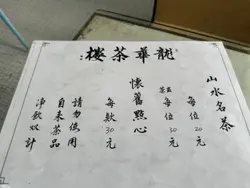 龍華茶樓
山水名茶
每位20元
每位30元
懷舊點心
每款30元
請勿使用
自来茶品
净飲双計